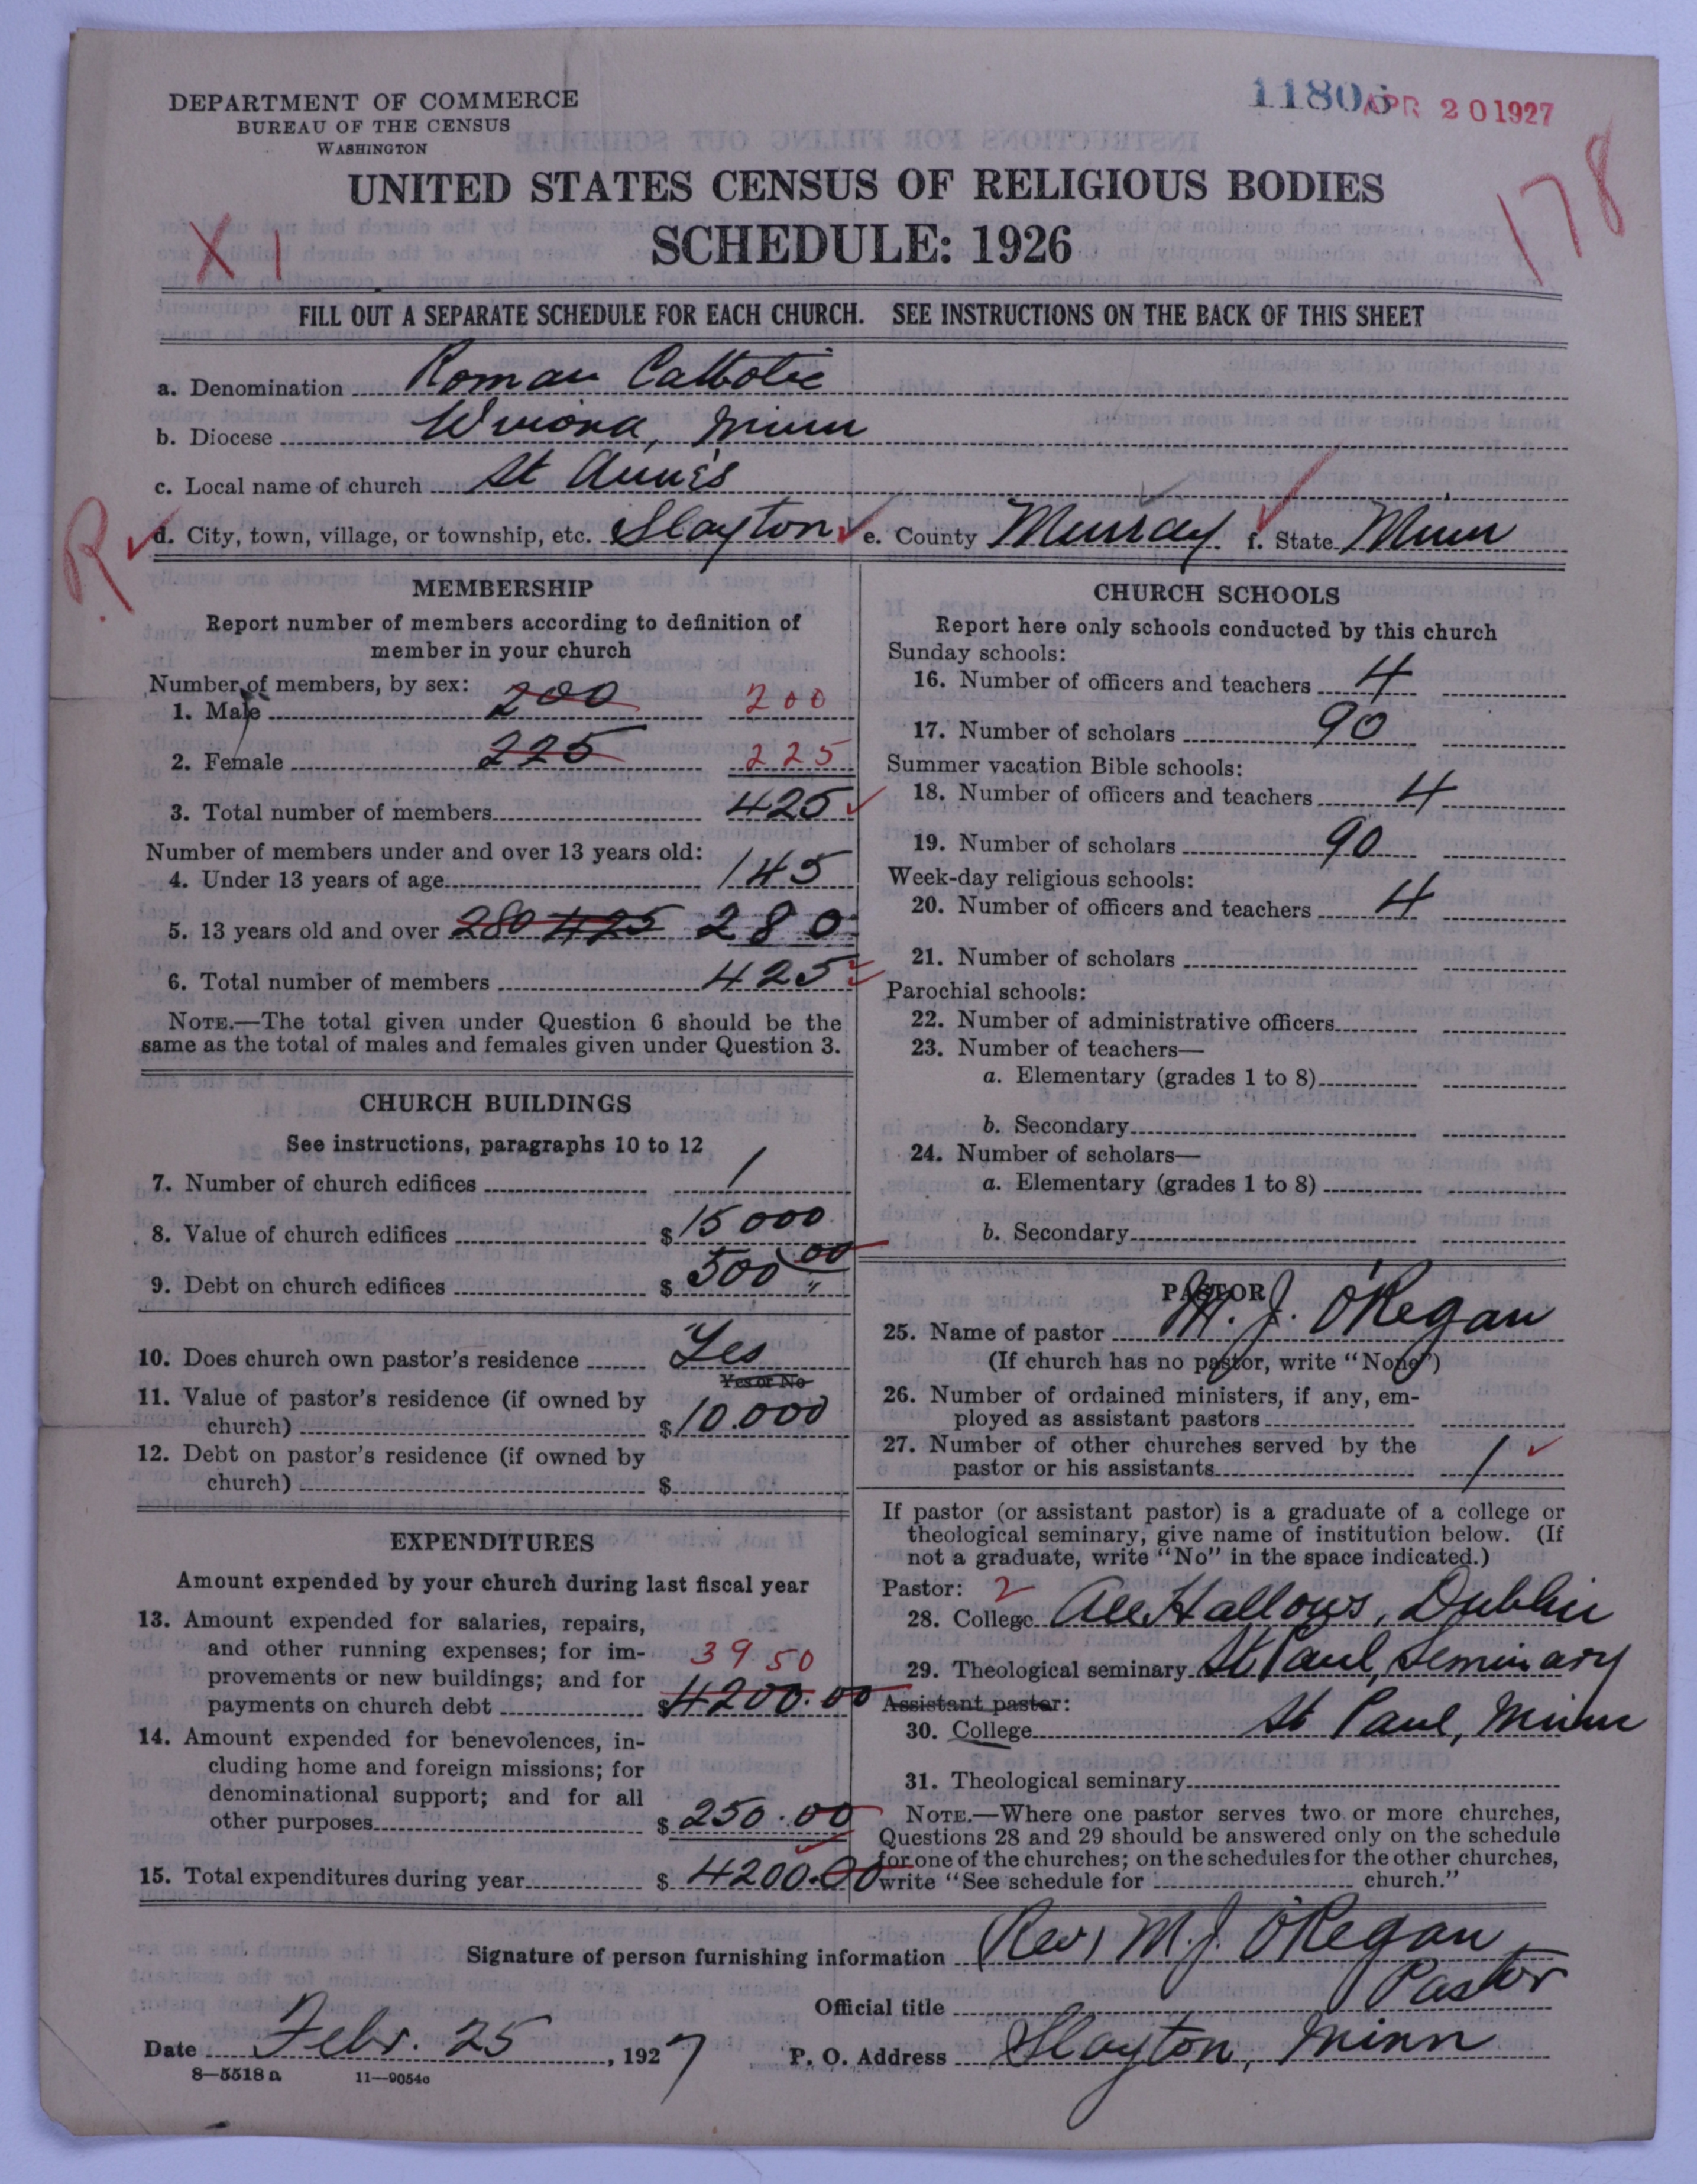 DEPARTMENT OF COMMERCE
BUREAU OF THE CENSUS
WASHINGTON
11806 APR 20 1927
178
UNITED STATES CENSUS OF RELIGIOUS BODIES
X 1
SCHEDULE: 1926
FILL OUT A SEPARATE SCHEDULE FOR EACH CHURCH. SEE INSTRUCTIONS ON THE BACK OF THIS SHEET
a. Denomination Roman Catholic
b. Diocese Winona, Minn
c. Local name of church St Anne's
R
d. City, town, village, or township, etc. Slayton e. County Murray f. State Minn
MEMBERSHIP
Report number of members according to definition of
member in your church
Number of members, by sex:
1. Male 200 200
2. Female 225 225
3. Total number of members 425
Number of members under and over 13 years old:
4. Under 13 years of age 145
5. 13 years old and over 280 425 280
6. Total number of members 425
NOTE.—The total given under Question 6 should be the
same as the total of males and females given under Question 3.
CHURCH BUILDINGS
See instructions, paragraphs 10 to 12
7. Number of church edifices 1
8. Value of church edifices $ 15000
9. Debt on church edifices $ 500 00
10. Does church own pastor's residence Yes
Yes or No
11. Value of pastor's residence (if owned by
church) $ 10.000
12. Debt on pastor's residence (if owned by
church) $
EXPENDITURES
Amount expended by your church during last fiscal year
13. Amount expended for salaries, repairs,
and other running expenses; for im-
provements or new buildings; and for 3950
payments on church debt $ 4200.00
14. Amount expended for benevolences, in-
cluding home and foreign missions; for
denominational support; and for all
other purposes $ 250.00
15. Total expenditures during year $ 4200.00
CHURCH SCHOOLS
Report here only schools conducted by this church
Sunday schools:
16. Number of officers and teachers 4
17. Number of scholars 90
Summer vacation Bible schools:
18. Number of officers and teachers 4
19. Number of scholars 90
Week-day religious schools:
20. Number of officers and teachers 4
21. Number of scholars
Parochial schools:
22. Number of administrative officers
23. Number of teachers—
a. Elementary (grades 1 to 8)
b. Secondary
24. Number of scholars—
a. Elementary (grades 1 to 8)
b. Secondary
PASTOR
25. Name of pastor M. J. O'Regan
(If church has no pastor, write "None")
26. Number of ordained ministers, if any, em-
ployed as assistant pastors
27. Number of other churches served by the
pastor or his assistants 1
If pastor (or assistant pastor) is a graduate of a college or
theological seminary, give name of institution below. (If
not a graduate, write "No" in the space indicated.)
Pastor: 2
28. College All Hallows, Dublin
29. Theological seminary St Paul, Seminary
Assistant pastor:
30. College St Paul, Minn
31. Theological seminary
NOTE.—Where one pastor serves two or more churches,
Questions 28 and 29 should be answered only on the schedule
for one of the churches; on the schedules for the other churches,
write "See schedule for church."
Signature of person furnishing information Rev, M. J. O'Regan
Official title Pastor
Date Febr. 25, 1927 P. O. Address Slayton, Minn
8—5518 a 11—9054c